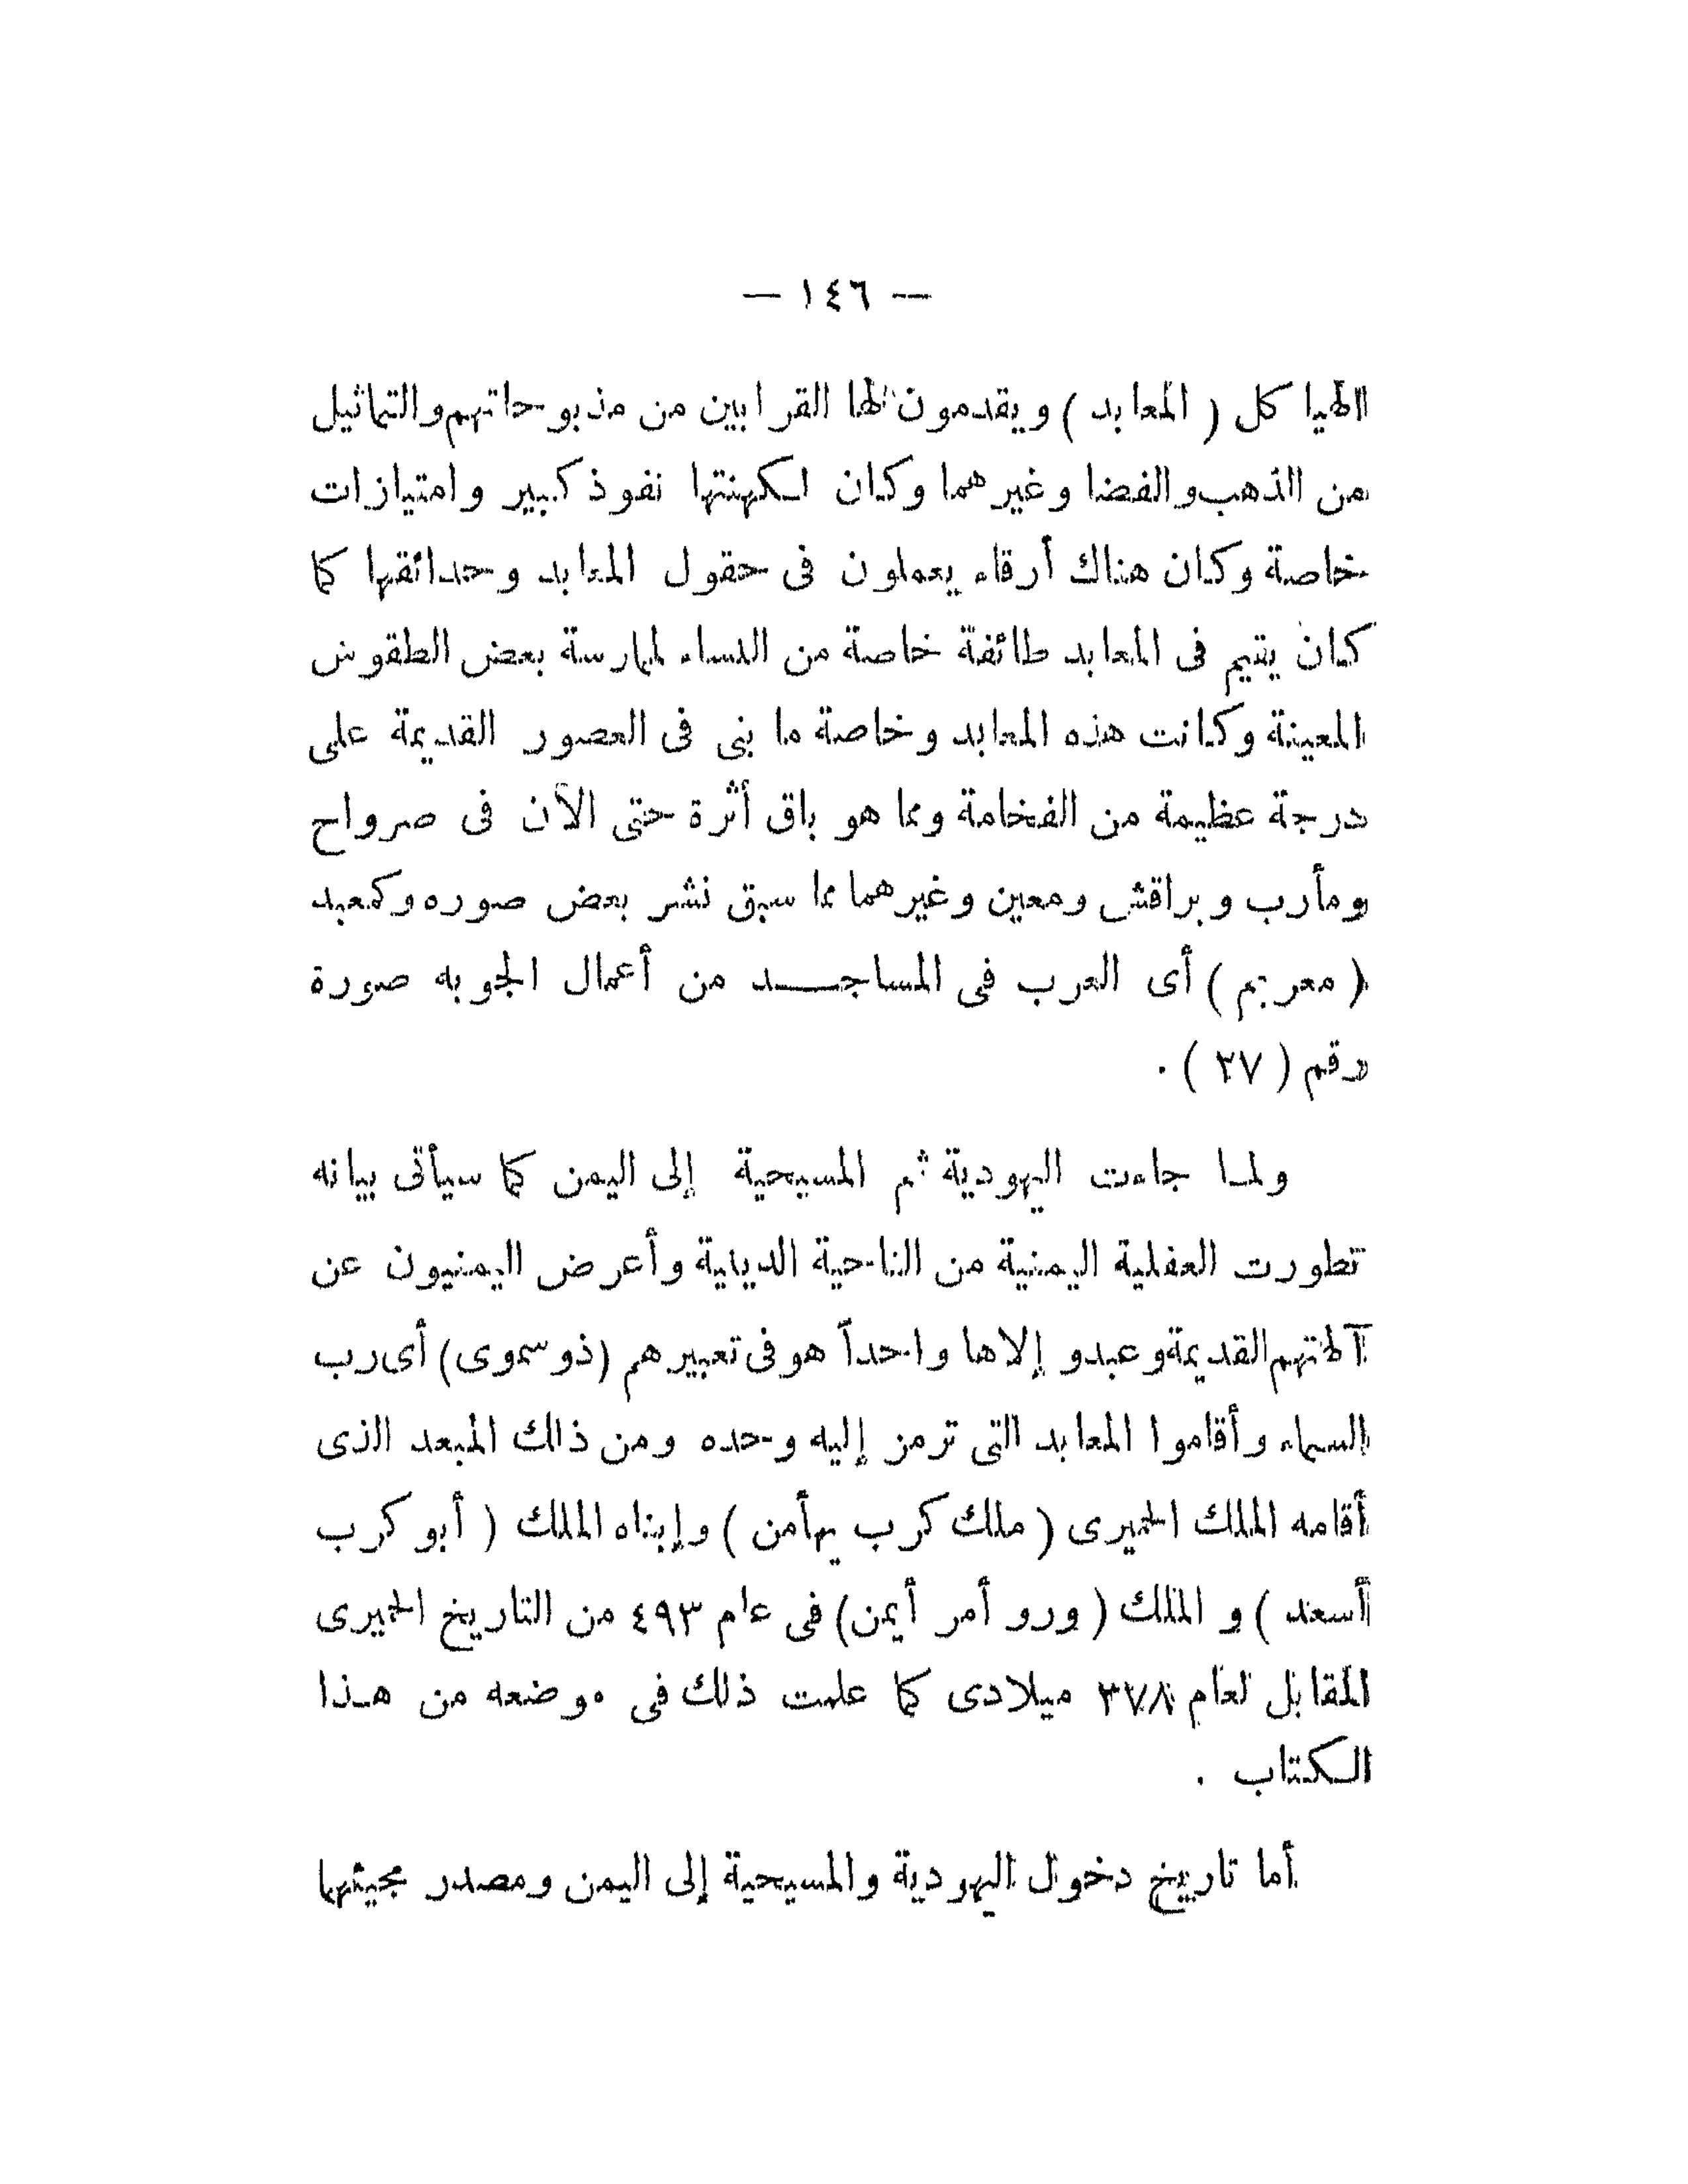 — ١٤٦ —
الهياكل ( المعابد ) ويقدمون لها القرابين من مذبوحاتهم والتماثيل
من الذهب والفضا وغيرهما وكان لكهنتها نفوذ كبير وامتيازات
خاصة وكان هناك أرقاء يعملون فى حقول المعابد وحدائقها كما
كان يقيم فى المعابد طائفة خاصة من النساء لممارسة بعض الطقوس
المعينة وكانت هذه المعابد وخاصة ما بنى فى العصور القديمة على
درجة عظيمة من الفخامة ومما هو باق أثرة حتى الآن فى صرواح
ومأرب وبراقش ومعين وغيرهما مما سبق نشر بعض صوره وكمعبد
( معربم ) أى العرب فى المساجد من أعمال الجوبه صورة
رقم ( ٢٧ ) .
ولما جاءت اليهودية ثم المسيحية إلى اليمن كما سيأتى بيانه
تطورت العقلية اليمنية من الناحية الدينية وأعرض اليمنيون عن
آلهتهم القديمة وعبدو إلاها واحداً هو فى تعبيرهم (ذو سموى) أى رب
السماء وأقاموا المعابد التى ترمز إليه وحده ومن ذلك المبعد الذى
أقامه الملك الحميرى ( ملك كرب يهأمن ) وإبناه الملك ( أبو كرب
أسعد ) و الملك ( ورو أمر أيمن) فى عام ٤٩٣ من التاريخ الحميرى
المقابل لعام ٣٧٨ ميلادى كما علمت ذلك فى موضعه من هذا
الكتاب .
أما تاريخ دخول اليهودية والمسيحية إلى اليمن ومصدر مجيئهما